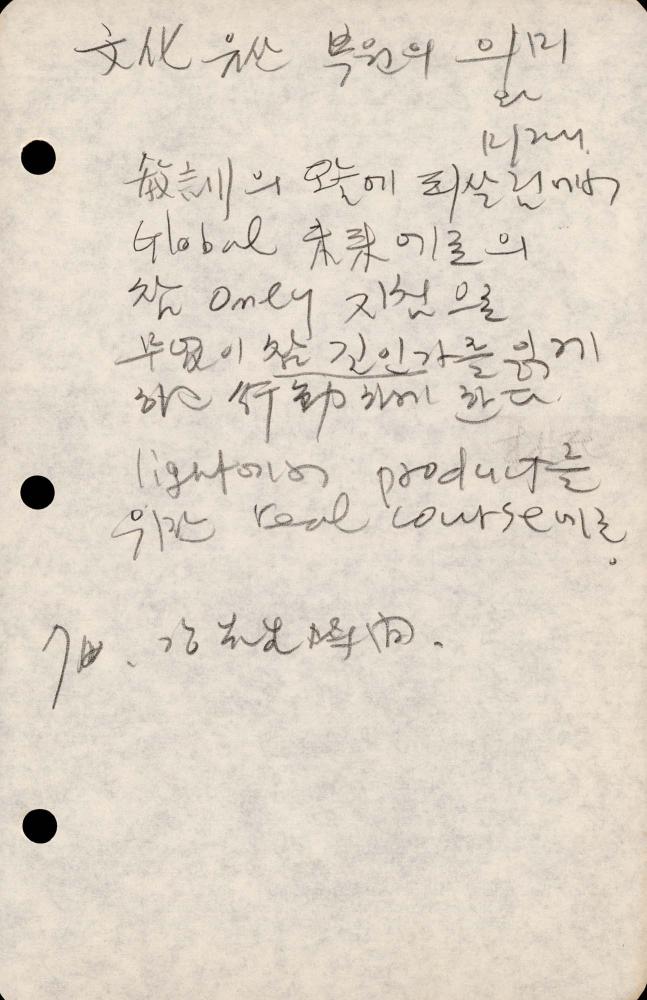 文化 유산 복원의 의미
와
미래
敎訓의 오늘에 되살림에서
Global 未來에로의
참 only 지침으로
무엇이 참 길인가를 읽게
하는 行動하게 한다.
light에서 product를
위한 real course에로.